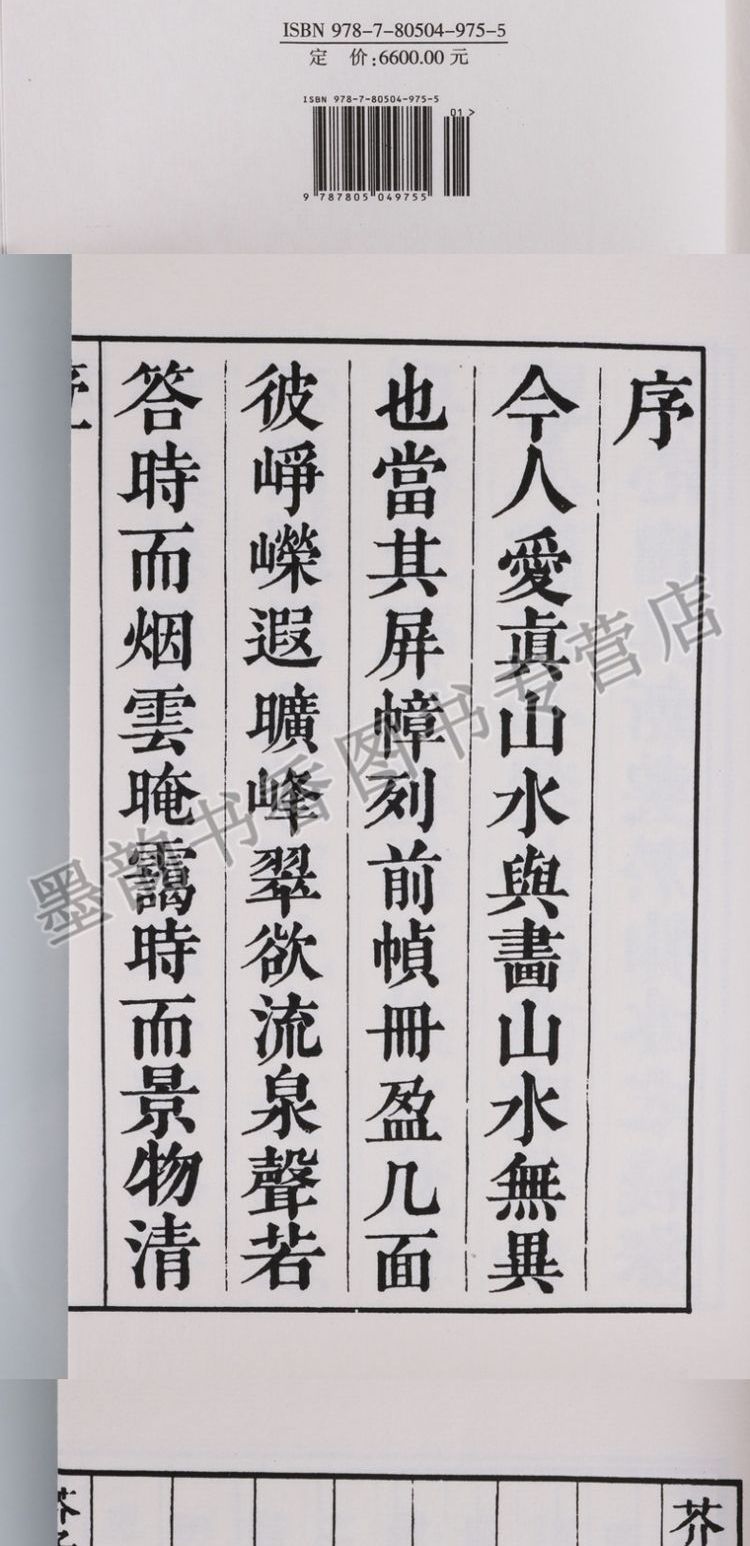 ISBN 978-7-80504-975-5
定 价:6600.00 元
ISBN 978-7-80504-975-5
01>
9 787805 049755
序
今人愛真山水與畫山水無異
也當其屏幛列前幀冊盈几面
彼崢嶸遐曠峰翠欲流泉聲若
答時而烟雲晻靄時而景物清
序一
墨韵书香图书专营店
芥